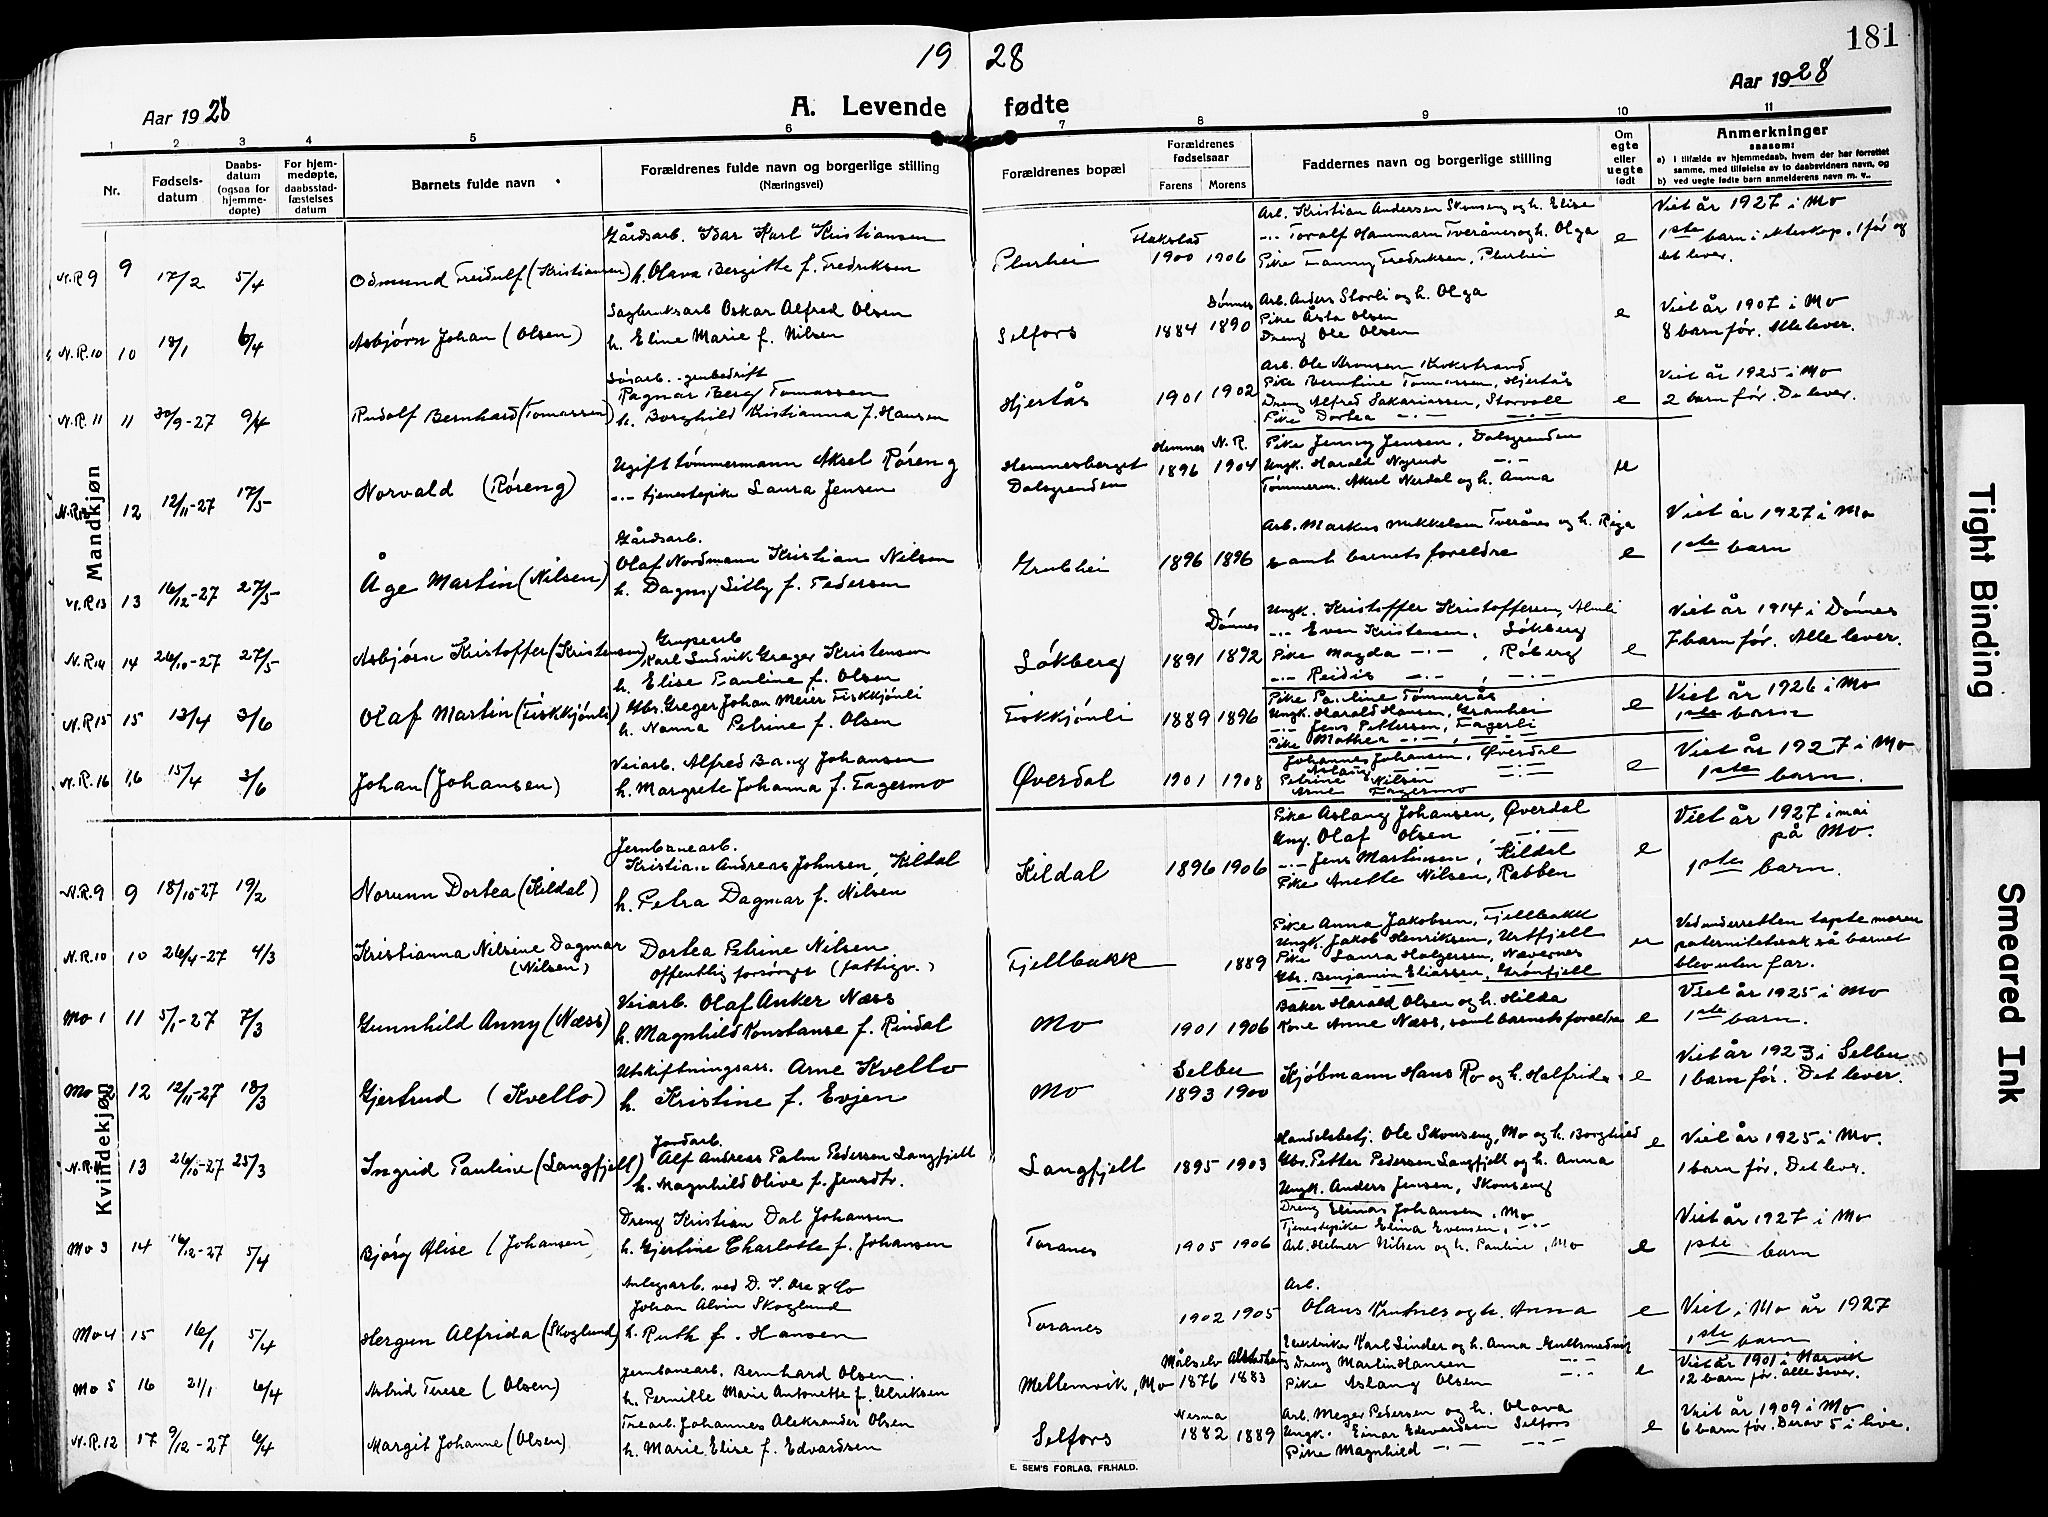 19 28
181
Aar 1928
A. Levende fødte
Aar 1928
1 2 3 4 5 6 7 8 9 10 11
Nr.
Fødsels-datum
Daabs-datum (ogsaa for hjemme-døpte)
For hjem-medøpte, daabsstad-fæstelses datum
Barnets fulde navn
Forældrenes fulde navn og borgerlige stilling (Næringsvei)
Forældrenes bopæl
Forældrenes fødselsaar
Farens Morens
Faddernes navn og borgerlige stilling
Om egte eller uegte født
Anmerkninger
saasom:
a) i tilfælde av hjemmedaab, hvem der har forrettet samme, med tilføielse av to daabsvidners navn, og
b) ved uegte født barn anmelderens navn m. v..
Mandkjøn
N.R 9 9 17/2 5/4 Odmund Freidulf (Kristiansen)
Gårdsarb. Ibar Karl Kristiansen
h. Olava Bergitte f. Fredriksen
Plurhei
Flakstad
1900 1906
Arb. Kristian Andersen Skonseng og h. Elise
-"- Toralf Hammann Tverånes og h. Olga
Pike Fanny Fredriksen, Plurhei
e
Viet år 1927 i Mo
1ste barn i ekteskap. 1 før og
det lever.
N.R.10 10 18/1 6/4 Asbjørn Johan (Olsen)
Sagbruksarb Oskar Alfred Olsen
h. Eline Marie f. Nilsen
Selfors
Dønnes
1884 1890
Arb. Anders Storli og h. Olga
Pike Åsta Olsen
Dreng Ole Olsen
e
Viet år 1907 i Mo
8 barn før. Alle lever.
N.R. 11 11 30/9-27 9/4 Rudolf Bernhard (Tomassen)
Ragnar Berg Tomassen
h. Borghild Kristianna f. Hansen
Hjertås
1901 1902
Arb. Ole Aronsen Kvokstrand
Pike Berntine Tomassen, Hjertås
Dreng Alfred Sakariassen, Storvoll
Pike Dortea -"- -"-
e
Viet år 1925 i Mo
2 barn før. De lever.
12 12/11-27 17/5 Norvald (Røreng)
Ugift tømmermann Aksel Røreng
-"- tjenestepike Laura Jensen
Hemnesberget
Dalsgrenden
Hemnes N.R.
1896 1904
Pike Jenny Jensen, Dalsgrenden
Ungk. Harald Nyrud -"-
Tømmerm. Aksel Nerdal og h. Anna
u
N.R13 13 16/12-27 27/5 Åge Martin (Nilsen)
Gårdsarb.
Olaf Nordmann Kristian Nilsen
h. Dagny Silly f. Pedersen
Grubhei
1896 1896
Arb. Markus Mikkelsen Tverånes og h. Raga
samt barnets foreldre
e
Viet år 1927 i Mo
1ste barn
N.R14 14 26/10-27 27/5 Asbjørn Kristoffer (Kristensen)
Grupearb
Karl Ludvik Greger Kristensen
h. Elise Pauline f. Olsen
Løkberg
Dønnes
1891 1892
Ungk. Kristoffer Kristoffersen, Almli
-"- Even Kristensen, Løkberg
Pike Magda -"-, Røberg
-"- Reidis -"-, -"-
e
Viet år 1914 i Dønnes
7 barn før. Alle lever.
N.R15 15 13/4 3/6 Olaf Martin (Fiskkjønli)
Gbr. Greger Johan Meier Fiskkjønli
h. Nanna Petrine f. Olsen
Fiskkjønli
1889 1896
Pike Pauline Tømmerås
Ungk. Harald Hansen, Granhei
-"- Jens Pettersen, Fagerli
Pike Mathea -"-, -"-
e
Viet år 1926 i Mo
1ste barn
N.R. 16 16 15/4 3/6 Johan (Johansen)
Veiarb. Alfred Bang Johansen
h. Margrete Johanna f. Fagermo
Øverdal
1901 1908
Johannes Johansen, Øverdal
Aslaug -"- -"-
Petrine Nilsen
Arne Fagermo
e
Viet år 1927 i Mo
1ste barn.
Kvindekjøn
N.R.9 9 18/10-27 19/2 Norunn Dortea (Kildal)
Jernbanearb.
Kristian Andreas Johnsen, Kildal
h. Petra Dagmar f. Nilsen
Kildal
1896 1906
Pike Aslaug Johansen, Øverdal
Ung. Olaf Olsen -"-
-"- Jens Martinsen, Kildal
Pike Anette Nilsen, Rabben
e
Viet år 1927 i mai
på Mo.
1ste barn.
N.R.10 10 26/4-27 4/3 Kristianna Nilsine Dagmar
(Nilsen)
Dortea Petrine Nilsen
offentlig forsørget (fattigv.)
Fjellbakk
1889
Pike Anna Jakobsen, Fjellbakk
Ungk. Jakob Henriksen, Urtfjell
Pike Laura Holgersen, Nævernes
Gbr. Benjamin Eliassen, Grønfjell
u
Ved underretten tapte moren
paternitetssak så barnet
blev uten far.
Mo 1 11 5/1-27 7/3 Gunnhild Anny (Næss)
Veiarb. Olaf Anker Næss
h. Magnhild Konstanse f. Rindal
Mo
1901 1906
Baker Harald Olsen og h. Hilda
Kone Anne Næss, samt barnets foreldre
e
Viet år 1925 i Mo
1ste barn.
Mo 2 12 12/11-27 18/3 Gjertrud (Kvello)
Utskiftningsass. Arne Kvello
h. Kristine f. Evjen
Mo
Selbu
1893 1900
Kjøbmann Hans Ro og h. Halfrida
e
Viet år 1923 i Selbu
1 barn før. Det lever.
N.R.11 13 26/10-27 25/3 Ingrid Pauline (Langfjell)
Jordarb.
Alf Andreas Palm Pedersen Langfjell
h. Magnhild Olive f. Jensdtr.
Langfjell
1895 1903
Handelsbetj. Ole Skonseng, Mo og h. Borghild
Gbr. Petter Pedersen Langfjell og h. Anna
Ungk. Anders Jensen, Skonseng
e
Viet år 1925 i Mo.
1 barn før. Det lever.
Mo 3 14 16/12-27 5/4 Bjørg Alise (Johansen)
Dreng Kristian Dal Johansen
h. Gjertine Charlotte f. Johansen
Toranes
1905 1906
Dreng Elinas Johansen, Mo
Tjenestepike Elina Evensen, -"-
Arb. Helmer Nilsen og h. Pauline, Mo
e
Viet år 1927 i Mo
1ste barn
Mo 4 15 16/1 5/4 Hergun Alfrida (Skoglund)
Anlegsarb. ved D. S. Ore & Co
Johan Alvin Skoglund
h. Ruth f. Hansen
Toranes
1902 1905
Arb.
Olaus Krutnes og h. Anna
e
Viet i Mo år 1927
1ste barn
Mo 5 16 21/1 6/4 Astrid Terese (Olsen)
Jernbanearb. Bernhard Olsen.
h. Pernille Marie Antonette f. Ulriksen
Mellemvik, Mo
Målselv Alstadhaug
1876 1883
Elektriker Karl Linder og h. Anna Gullsmedvik
Dreng Martin Hansen -"-
Pike Aslaug Olsen -"-
e
Viet år 1901 i Narvik
12 barn før. Alle lever.
N.R.12 17 9/12-27 6/4 Margit Johanne (Olsen)
Trearb. Johannes Aleksander Olsen
h. Marie Elise f. Edvardsen
Selfors
Nesna
1882 1889
Arb. Meyer Pedersen og h. Olava
Ungk. Einar Edvardsen Selfors
Pike Magnhild -"- -"-
e
Viet år 1909 i Mo
6 barn før. Derav 5 i live.
E. SEM'S FORLAG, FR.HALD.
Tight Binding
Smeared Ink